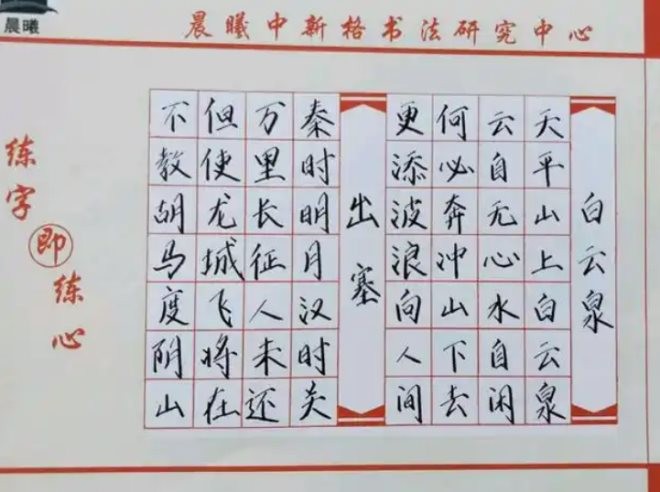 晨曦
晨曦中新格书法研究中心
白云泉
天平山上白云泉
云自无心水自闲
何必奔冲山下去
更添波浪向人间
出塞
秦时明月汉时关
万里长征人未还
但使龙城飞将在
不教胡马度阴山
练字即练心